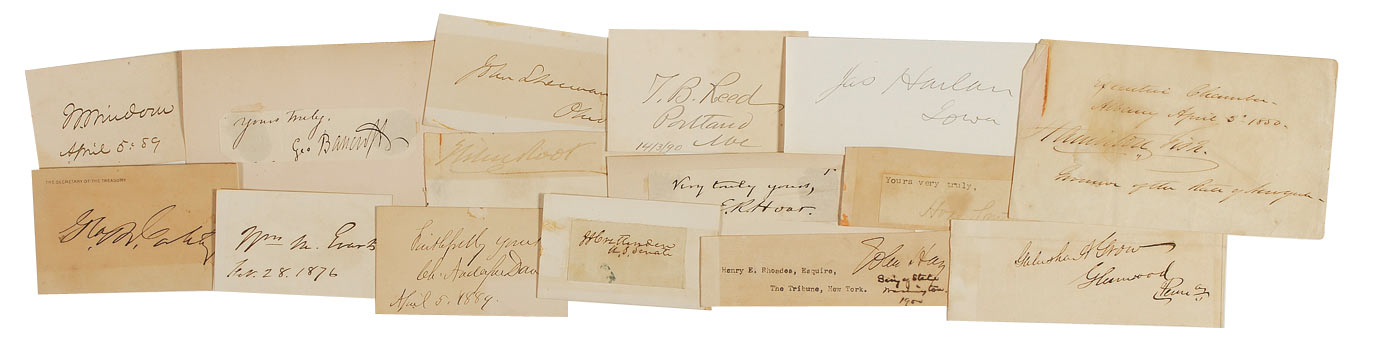 W Windom
April 5. 89
Yours truly.
Geo Bancroft
John Sherman
Ohio
T. B. Reed
Portland
Me
14/3/90
Jas Harlan
Iowa
Executive Chamber.
Albany April 5th 1850.
Hamilton Fish.
Governor of the State of New York
THE SECRETARY OF THE TREASURY.
Wm M. Evarts
28. 1876
Elihu Root
Faithfully yours
April 5. 1889.
JJ Crittenden
U.S. Senate
Very truly yours,
E.R. Hoar.
Yours very truly,
Henry E. Rhoades, Esquire,
The Tribune, New York.
John Hay
Sec'y of State
Washington
1900
Galusha A Grow
Glenwood